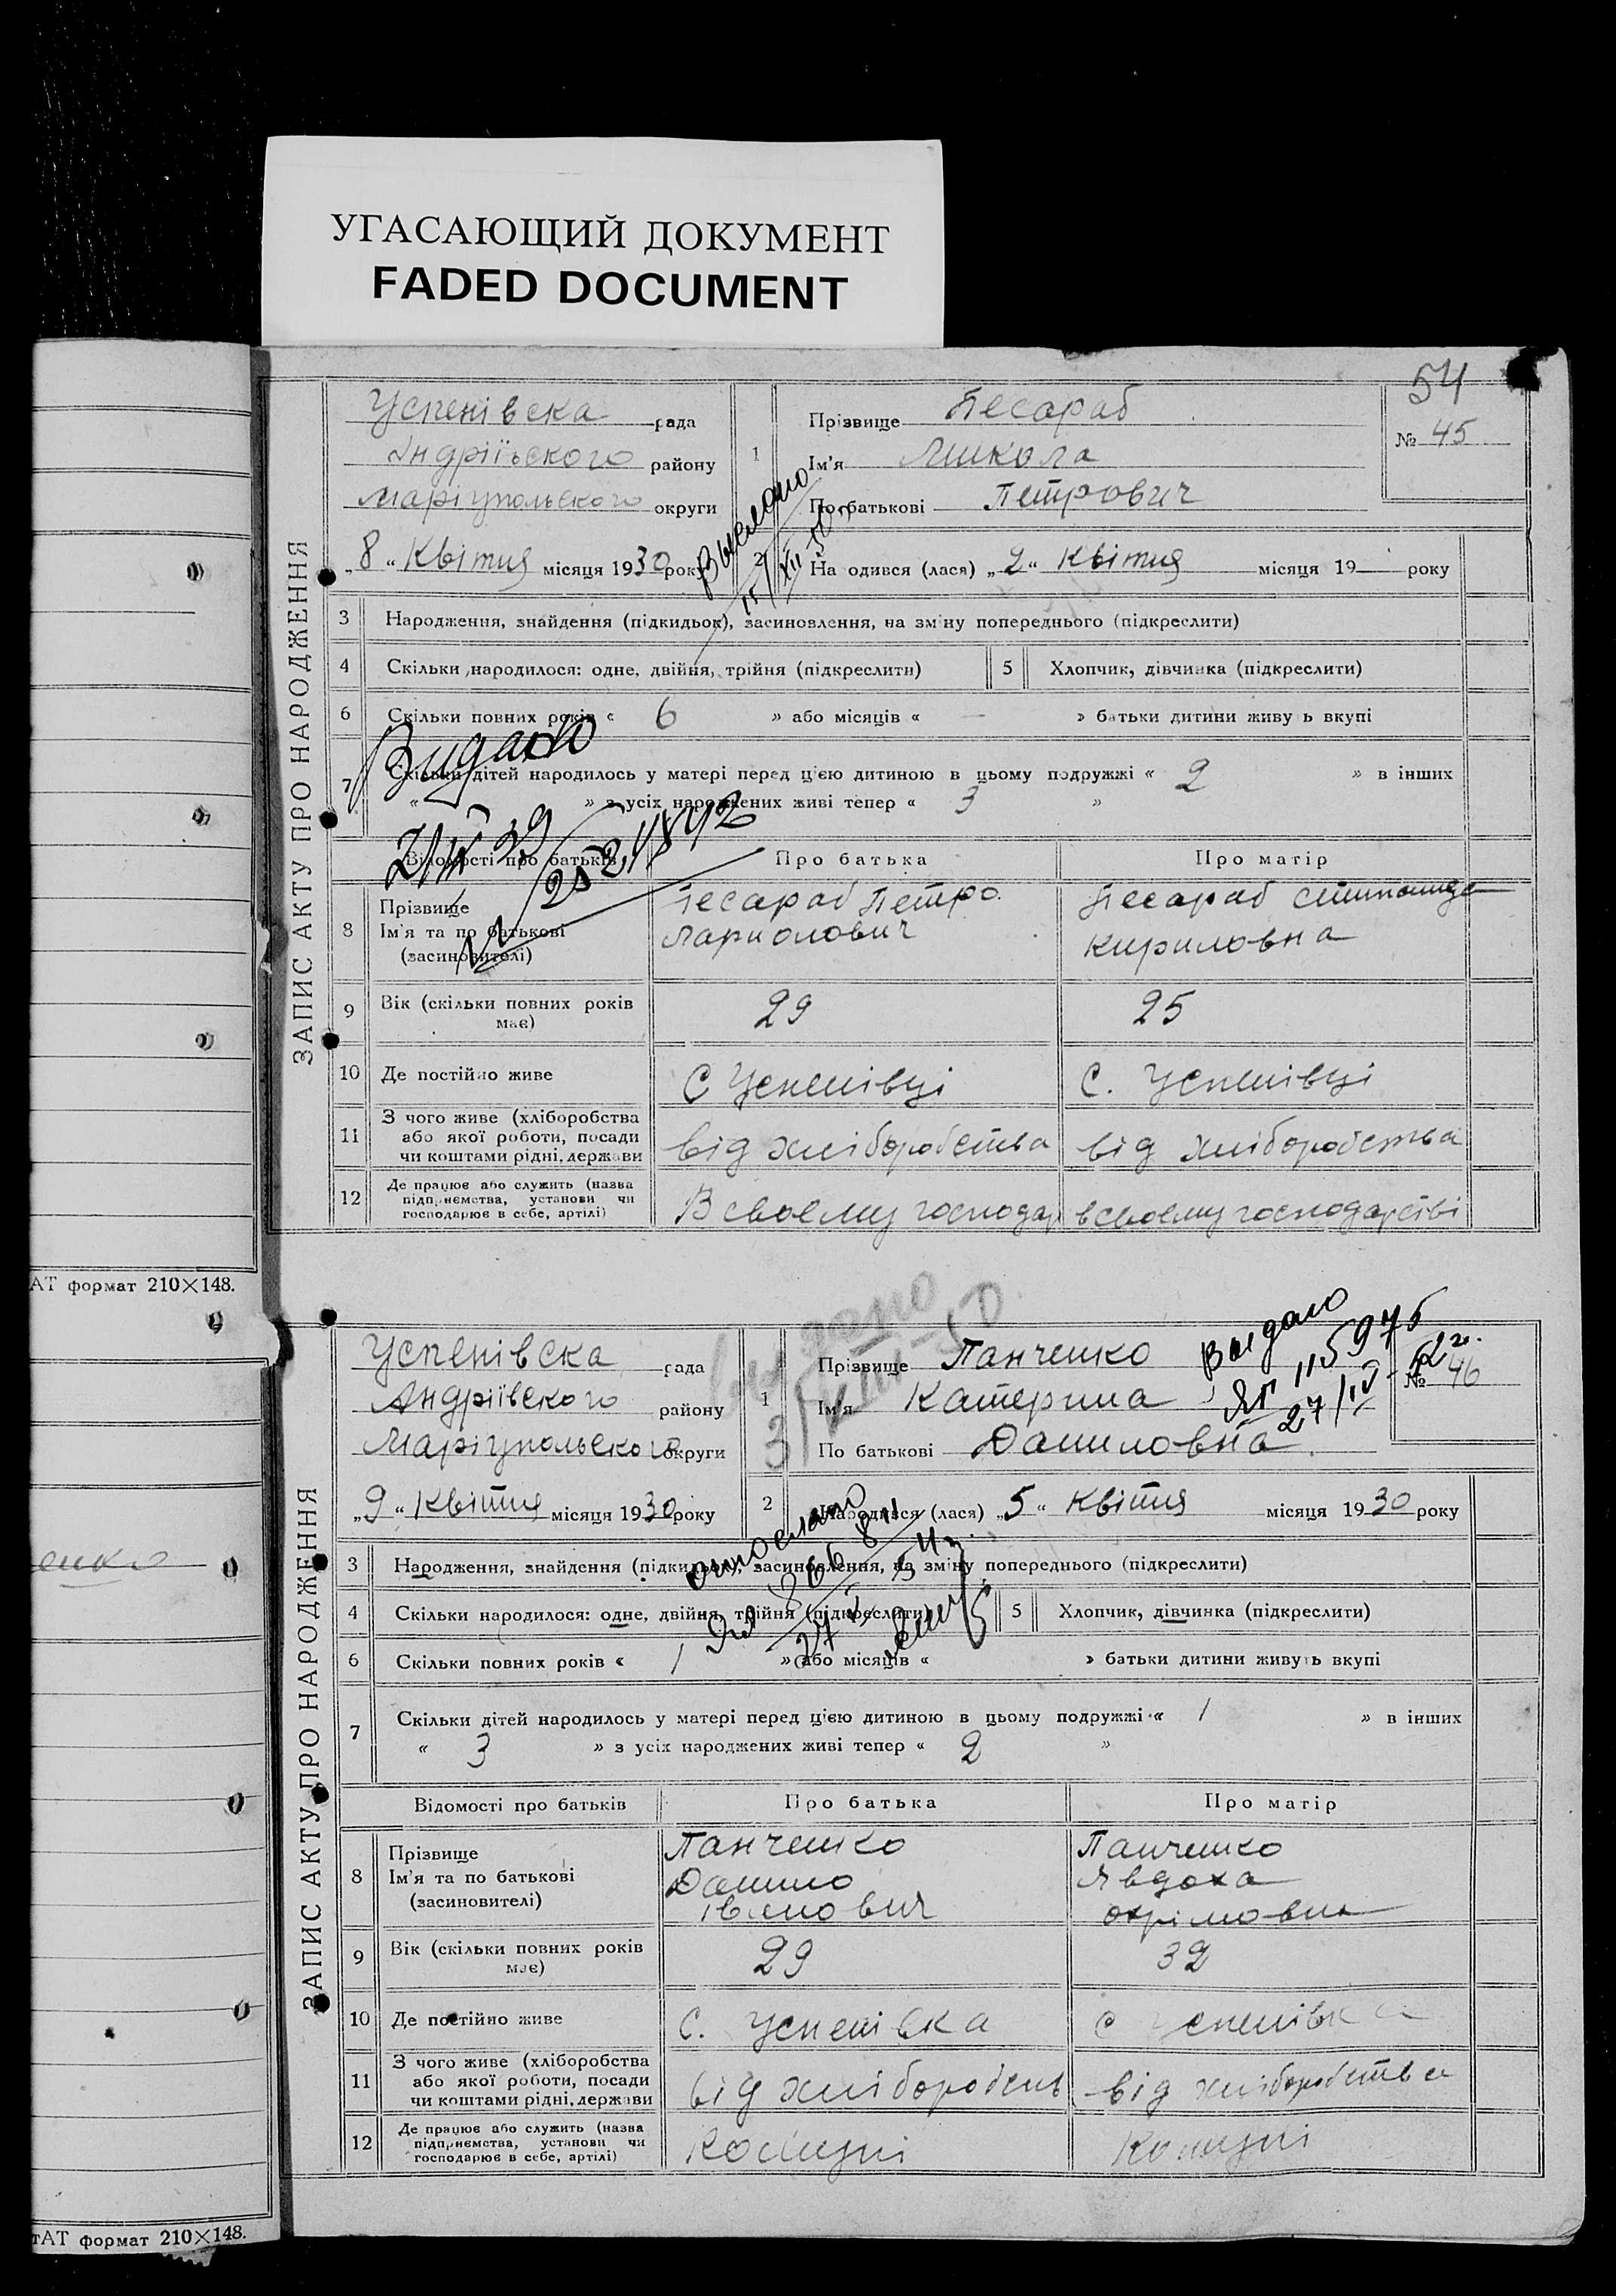 УГАСАЮЩИЙ ДОКУМЕНТ
FADED DOCUMENT
54
ЗАПИС АКТУ ПРО НАРОДЖЕННЯ
Успенівска рада
Андріївского району
Маріупольского округи
„8“ Квітня місяця 1930 року
1 Прізвище Бесараб
Ім'я Микола
По батькові Петрович
№ 45
Выслано
2 На одився (лася) „2“ Квітня місяця 19 року
3 Народження, знайдення (підкидьок), засиновлення, на зміну попереднього (підкреслити)
4 Скільки народилося: одне, двійня, трійня (підкреслити) 5 Хлопчик, дівчинка (підкреслити)
6 Скільки повних років « 6 » або місяців « — » батьки дитини живу ь вкупі
Видано
7 Скільки дітей народилось у матері перед цією дитиною в цьому подружжі « 2 » в інших
« » з усіх народжених живі тепер « 3 »
Відомості про батьків Про батька Про матір
8 Прізвище
Ім'я та по батькові
(засиновителі)
Бесараб Петро
Ларионович
Бесараб Степанида
Кириловна
9 Вік (скільки повних років має) 29 25
10 Де постійно живе С Успенівці С. Успенівці
11 З чого живе (хліборобства
або якої роботи, посади
чи коштами рідні, держави
від хліборобства від хліборобства
12 Де працює або служить (назва
підприємства, установи чи
господарює в себе, артілі)
В своєму господар в своєму господарстві
АТ формат 210×148.
ЗАПИС АКТУ ПРО НАРОДЖЕННЯ
Успенівска рада
Андріївского району
Маріупольского округи
„9“ Квітня місяця 1930 року
1 Прізвище Панченко
Ім'я Катерина
По батькові Даниловна
Выдано
ЯГ 115975
27/IV-52г.
№ 46
2 Народився (лася) „5“ Квітня місяця 1930 року
3 Народження, знайдення (підкидьок), засиновлення, на зміну попереднього (підкреслити)
4 Скільки народилося: одне, двійня, трійня (підкреслити) 5 Хлопчик, дівчинка (підкреслити)
6 Скільки повних років « 1 » або місяців « » батьки дитини живуть вкупі
7 Скільки дітей народилось у матері перед цією дитиною в цьому подружжі « 1 » в інших
« 3 » з усіх народжених живі тепер « 2 »
Відомості про батьків Про батька Про матір
8 Прізвище
Ім'я та по батькові
(засиновителі)
Панченко
Данило
Іванович
Панченко
Явдоха
Охрімовна
9 Вік (скільки повних років має) 29 32
10 Де постійно живе С. Успенівка С Успенівка
11 З чого живе (хліборобства
або якої роботи, посади
чи коштами рідні, держави
від хліборобств від хліборобства
12 Де працює або служить (назва
підприємства, установи чи
господарює в себе, артілі)
Комуні Комуні
тАТ формат 210×148.